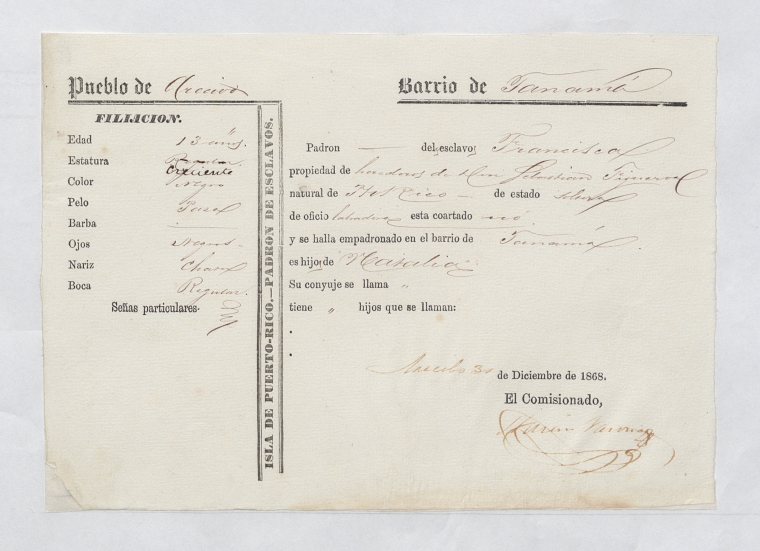 Pueblo de Arecivo
Barrio de Tanamá
FILIACION.
Edad 13 años.
Estatura Creciente
Color Negro
Pelo Pasa
Barba
Ojos Negros
Nariz Chata
Boca Regular.
Señas particulares.
ISLA DE PUERTO-RICO.—PADRON DE ESCLAVOS.
Padron — del esclavo Francisca
propiedad de herederos de Don Sebastian Figueroa
natural de Pto Rico — de estado soltera
de oficio labradora esta coartado nó.
y se halla empadronado en el barrio de Tanamá
es hijo de Natalia
Su conyuje se llama "
tiene " hijos que se llaman:
Arecibo 31 de Diciembre de 1868.
El Comisionado,